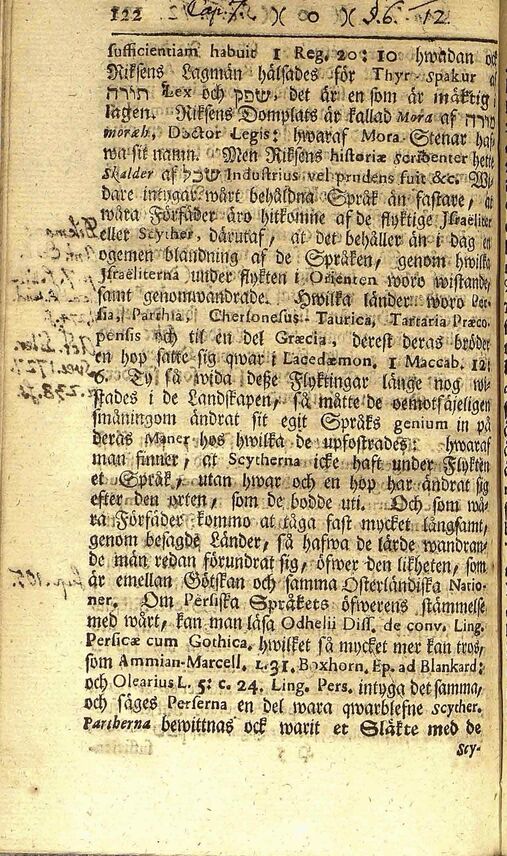 122 Cap. 7. )( o )( §. 6. 12
sufficientiam habuit 1 Reg. 20: 10 hwadan och
Riksens Lagmän hälsades för Thyr-spakur af
תורה Lex och שפק, det är en som är mäktig i
lagen. Riksens Domplats är kallad Mora af מורה
moræh, Doctor Legis: hwaraf Mora-Stenar haf-
wa sit namn. Men Riksens historiæ forstdenter hette
Skalder af שכל Industrius vel prudens fuit &c. Wi-
dare intygar wårt behåldna Språk än fastare, at
wåra Förfäder äro hitkomne af de flyktige Jsraëliter
eller Scyther, därutaf, at det behåller än i dag en
ogemen blandning af de Språken, genom hwilka
Jsraëliterna under flykten i Orienten woro wistande,
samt genomwandrade. Hwilka länder woro Per-
sia, Parthia, Chersonesus Taurica, Tartaria Præco-
pensis och til en del Græcia, derest deras bröder
en hop satte sig qwar i Lacedæmon. 1 Maccab. 12:
6. Ty så wida deße Flyktingar länge nog wi-
stades i de Landskapen, så måtte de oemotsäjeligen
småningom ändrat sit egit Språks genium in på
deras Maner hos hwilka de upfostrades: hwaraf
man finner, at Scytherna icke haft under Flykten
et Språk, utan hwar och en hop har ändrat sig
efter den orten, som de bodde uti. Och som wå-
ra Förfäder kommo at tåga fast mycket långsamt,
genom besagde Länder, så hafwa de lärde wandran-
de män redan förundrat sig, öfwer den likheten, som
är emellan Götskan och samma Osterländiska Natio-
ner. Om Persiska Språkets öfwerens stämmelse
med wårt, kan man läsa Odhelii Diss. de conv. Ling.
Persicæ cum Gothica. hwilket så mycket mer kan tros,
som Ammian-Marcell. L. 31. Boxhorn. Ep. ad Blankard:
och Olearius L. 5: c. 24. Ling. Pers. intyga det samma,
och säges Perserna en del wara qwarblefne Scyther.
Partherna bewittnas ock warit et Släkte med de
Scy-